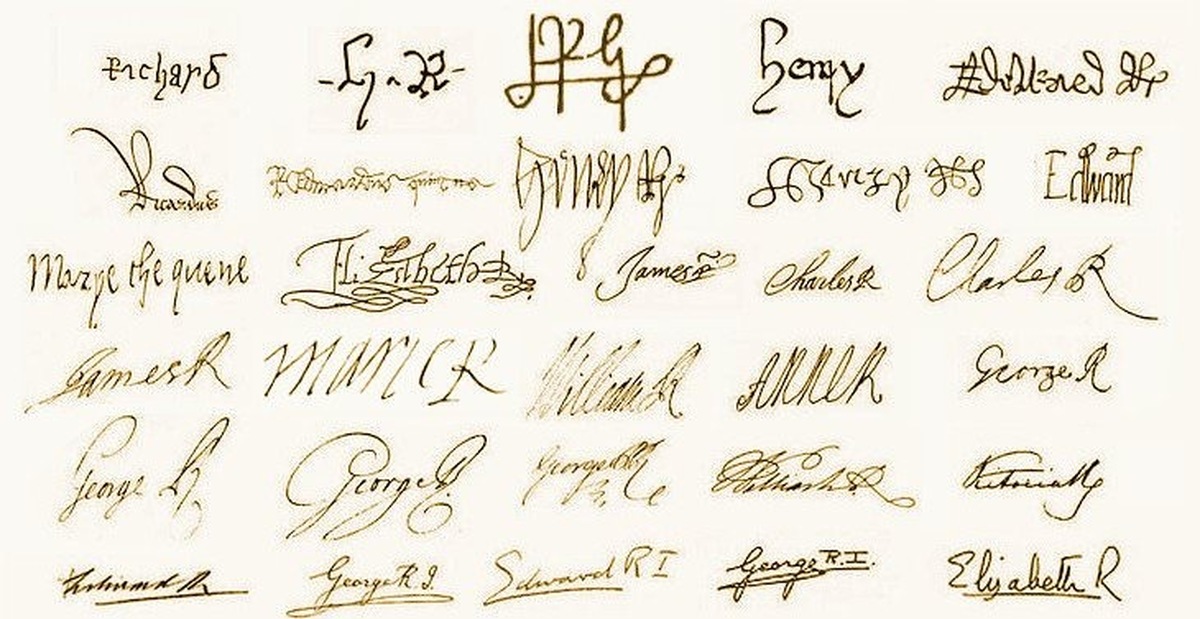 Richard H R R H Henry Edward R
Ricardus Henry R Henry R Edward
Marye the quene Elizabeth James R Charles R Charles R
James R Marie R William R ANNE R George R
George R George R George R William R Victoria R
Edward R George R.I. Edward R I George R.I. Elizabeth R